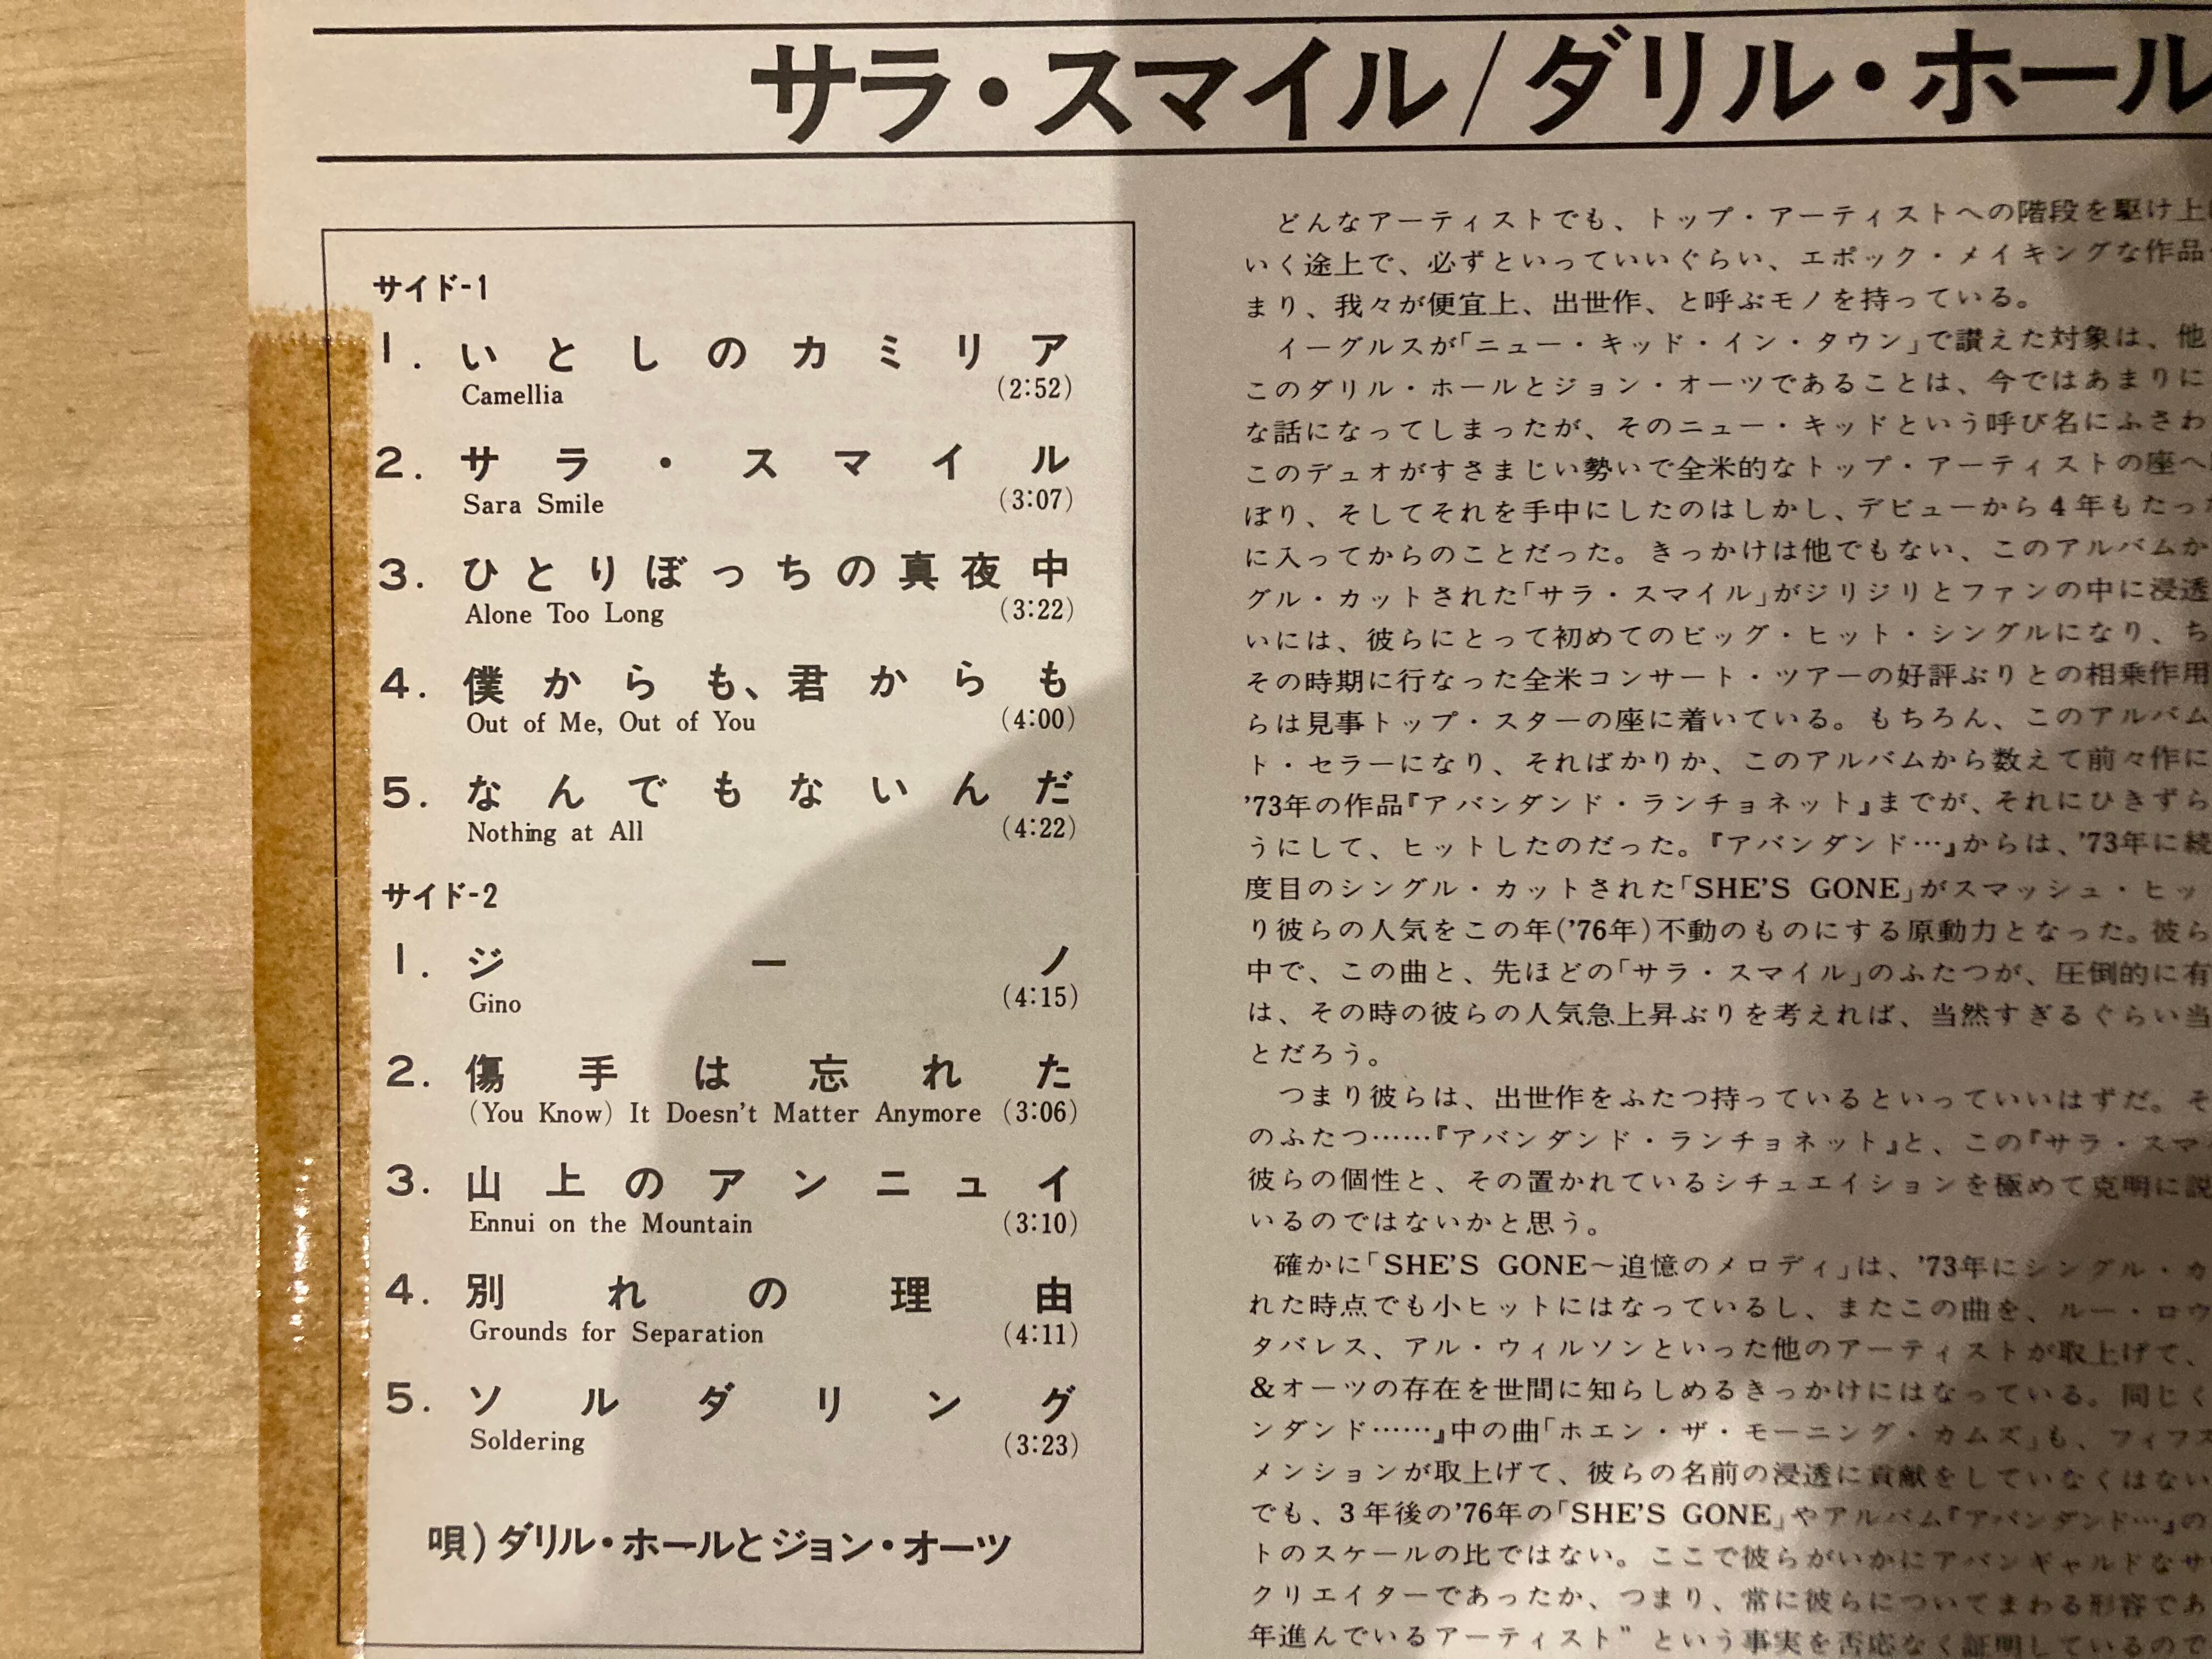 サラ・スマイル/ダリル・ホール
サイド-1
1. いとしのカミリア
Camellia (2:52)
2. サラ・スマイル
Sara Smile (3:07)
3. ひとりぼっちの真夜中
Alone Too Long (3:22)
4. 僕からも、君からも
Out of Me, Out of You (4:00)
5. なんでもないんだ
Nothing at All (4:22)
サイド-2
1. ジーノ
Gino (4:15)
2. 傷手は忘れた
(You Know) It Doesn't Matter Anymore (3:06)
3. 山上のアンニュイ
Ennui on the Mountain (3:10)
4. 別れの理由
Grounds for Separation (4:11)
5. ソルダリング
Soldering (3:23)
唄)ダリル・ホールとジョン・オーツ
どんなアーティストでも、トップ・アーティストへの階段を駆け上
いく途上で、必ずといっていいぐらい、エポック・メイキングな作品
まり、我々が便宜上、出世作、と呼ぶモノを持っている。
イーグルスが「ニュー・キッド・イン・タウン」で讃えた対象は、他
このダリル・ホールとジョン・オーツであることは、今ではあまりに
な話になってしまったが、そのニュー・キッドという呼び名にふさわ
このデュオがすさまじい勢いで全米的なトップ・アーティストの座へ
ぼり、そしてそれを手中にしたのはしかし、デビューから4年もたっ
に入ってからのことだった。きっかけは他でもない、このアルバムか
グル・カットされた「サラ・スマイル」がジリジリとファンの中に浸透
いには、彼らにとって初めてのビッグ・ヒット・シングルになり、ち
その時期に行なった全米コンサート・ツアーの好評ぶりとの相乗作用
らは見事トップ・スターの座に着いている。もちろん、このアルバム
ト・セラーになり、そればかりか、このアルバムから数えて前々作に
'73年の作品『アバンダンド・ランチョネット』までが、それにひきずら
うにして、ヒットしたのだった。『アバンダンド…』からは、'73年に続
度目のシングル・カットされた「SHE'S GONE」がスマッシュ・ヒッ
り彼らの人気をこの年('76年)不動のものにする原動力となった。彼ら
中で、この曲と、先ほどの「サラ・スマイル」のふたつが、圧倒的に有
は、その時の彼らの人気急上昇ぶりを考えれば、当然すぎるぐらい当
とだろう。
つまり彼らは、出世作をふたつ持っているといっていいはずだ。そ
のふたつ……『アバンダンド・ランチョネット』と、この『サラ・スマ
彼らの個性と、その置かれているシチュエイションを極めて克明に説
いるのではないかと思う。
確かに「SHE'S GONE～追憶のメロディ」は、'73年にシングル・カ
れた時点でも小ヒットにはなっているし、またこの曲を、ルー・ロウ
タバレス、アル・ウィルソンといった他のアーティストが取上げて、
&オーツの存在を世間に知らしめるきっかけにはなっている。同じく
ンダンド……』中の曲「ホエン・ザ・モーニング・カムズ」も、フィフス
メンションが取上げて、彼らの名前の浸透に貢献をしていなくはない
でも、3年後の'76年の「SHE'S GONE」やアルバム『アバンダンド…』の
トのスケールの比ではない。ここで彼らがいかにアバンギャルドなサ
クリエイターであったか、つまり、常に彼らについてまわる形容であ
年進んでいるアーティスト”という事実を否応なく証明しているので